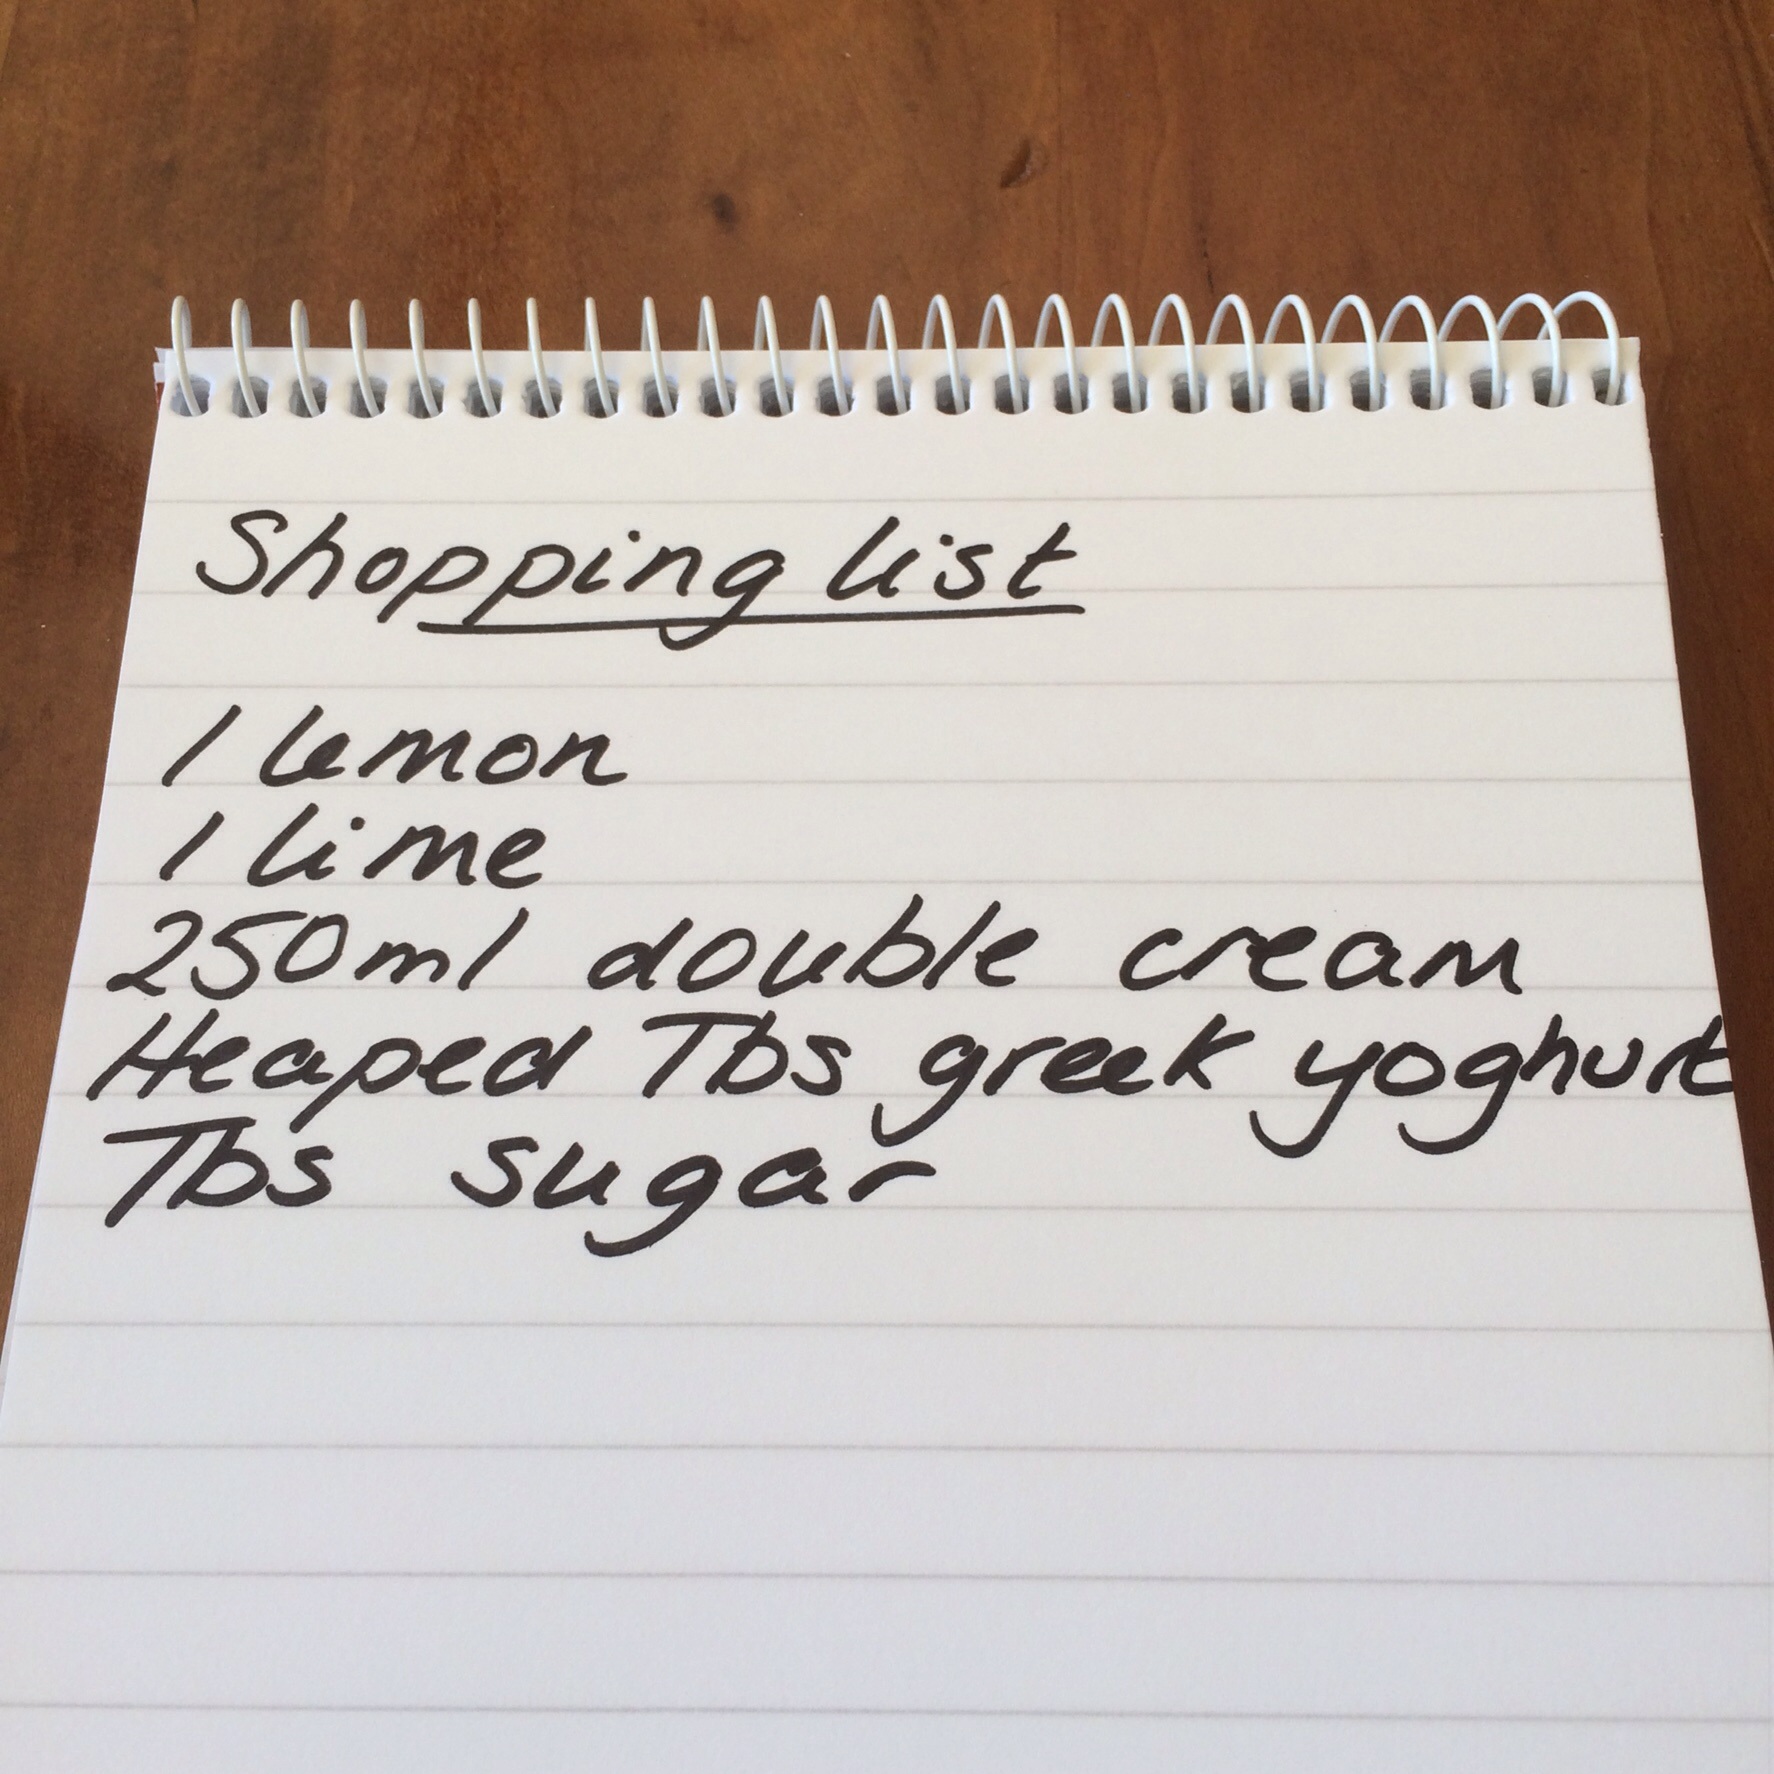 Shopping list
1 lemon
1 lime
250ml double cream
Heaped Tbs greek yoghurt
Tbs sugar